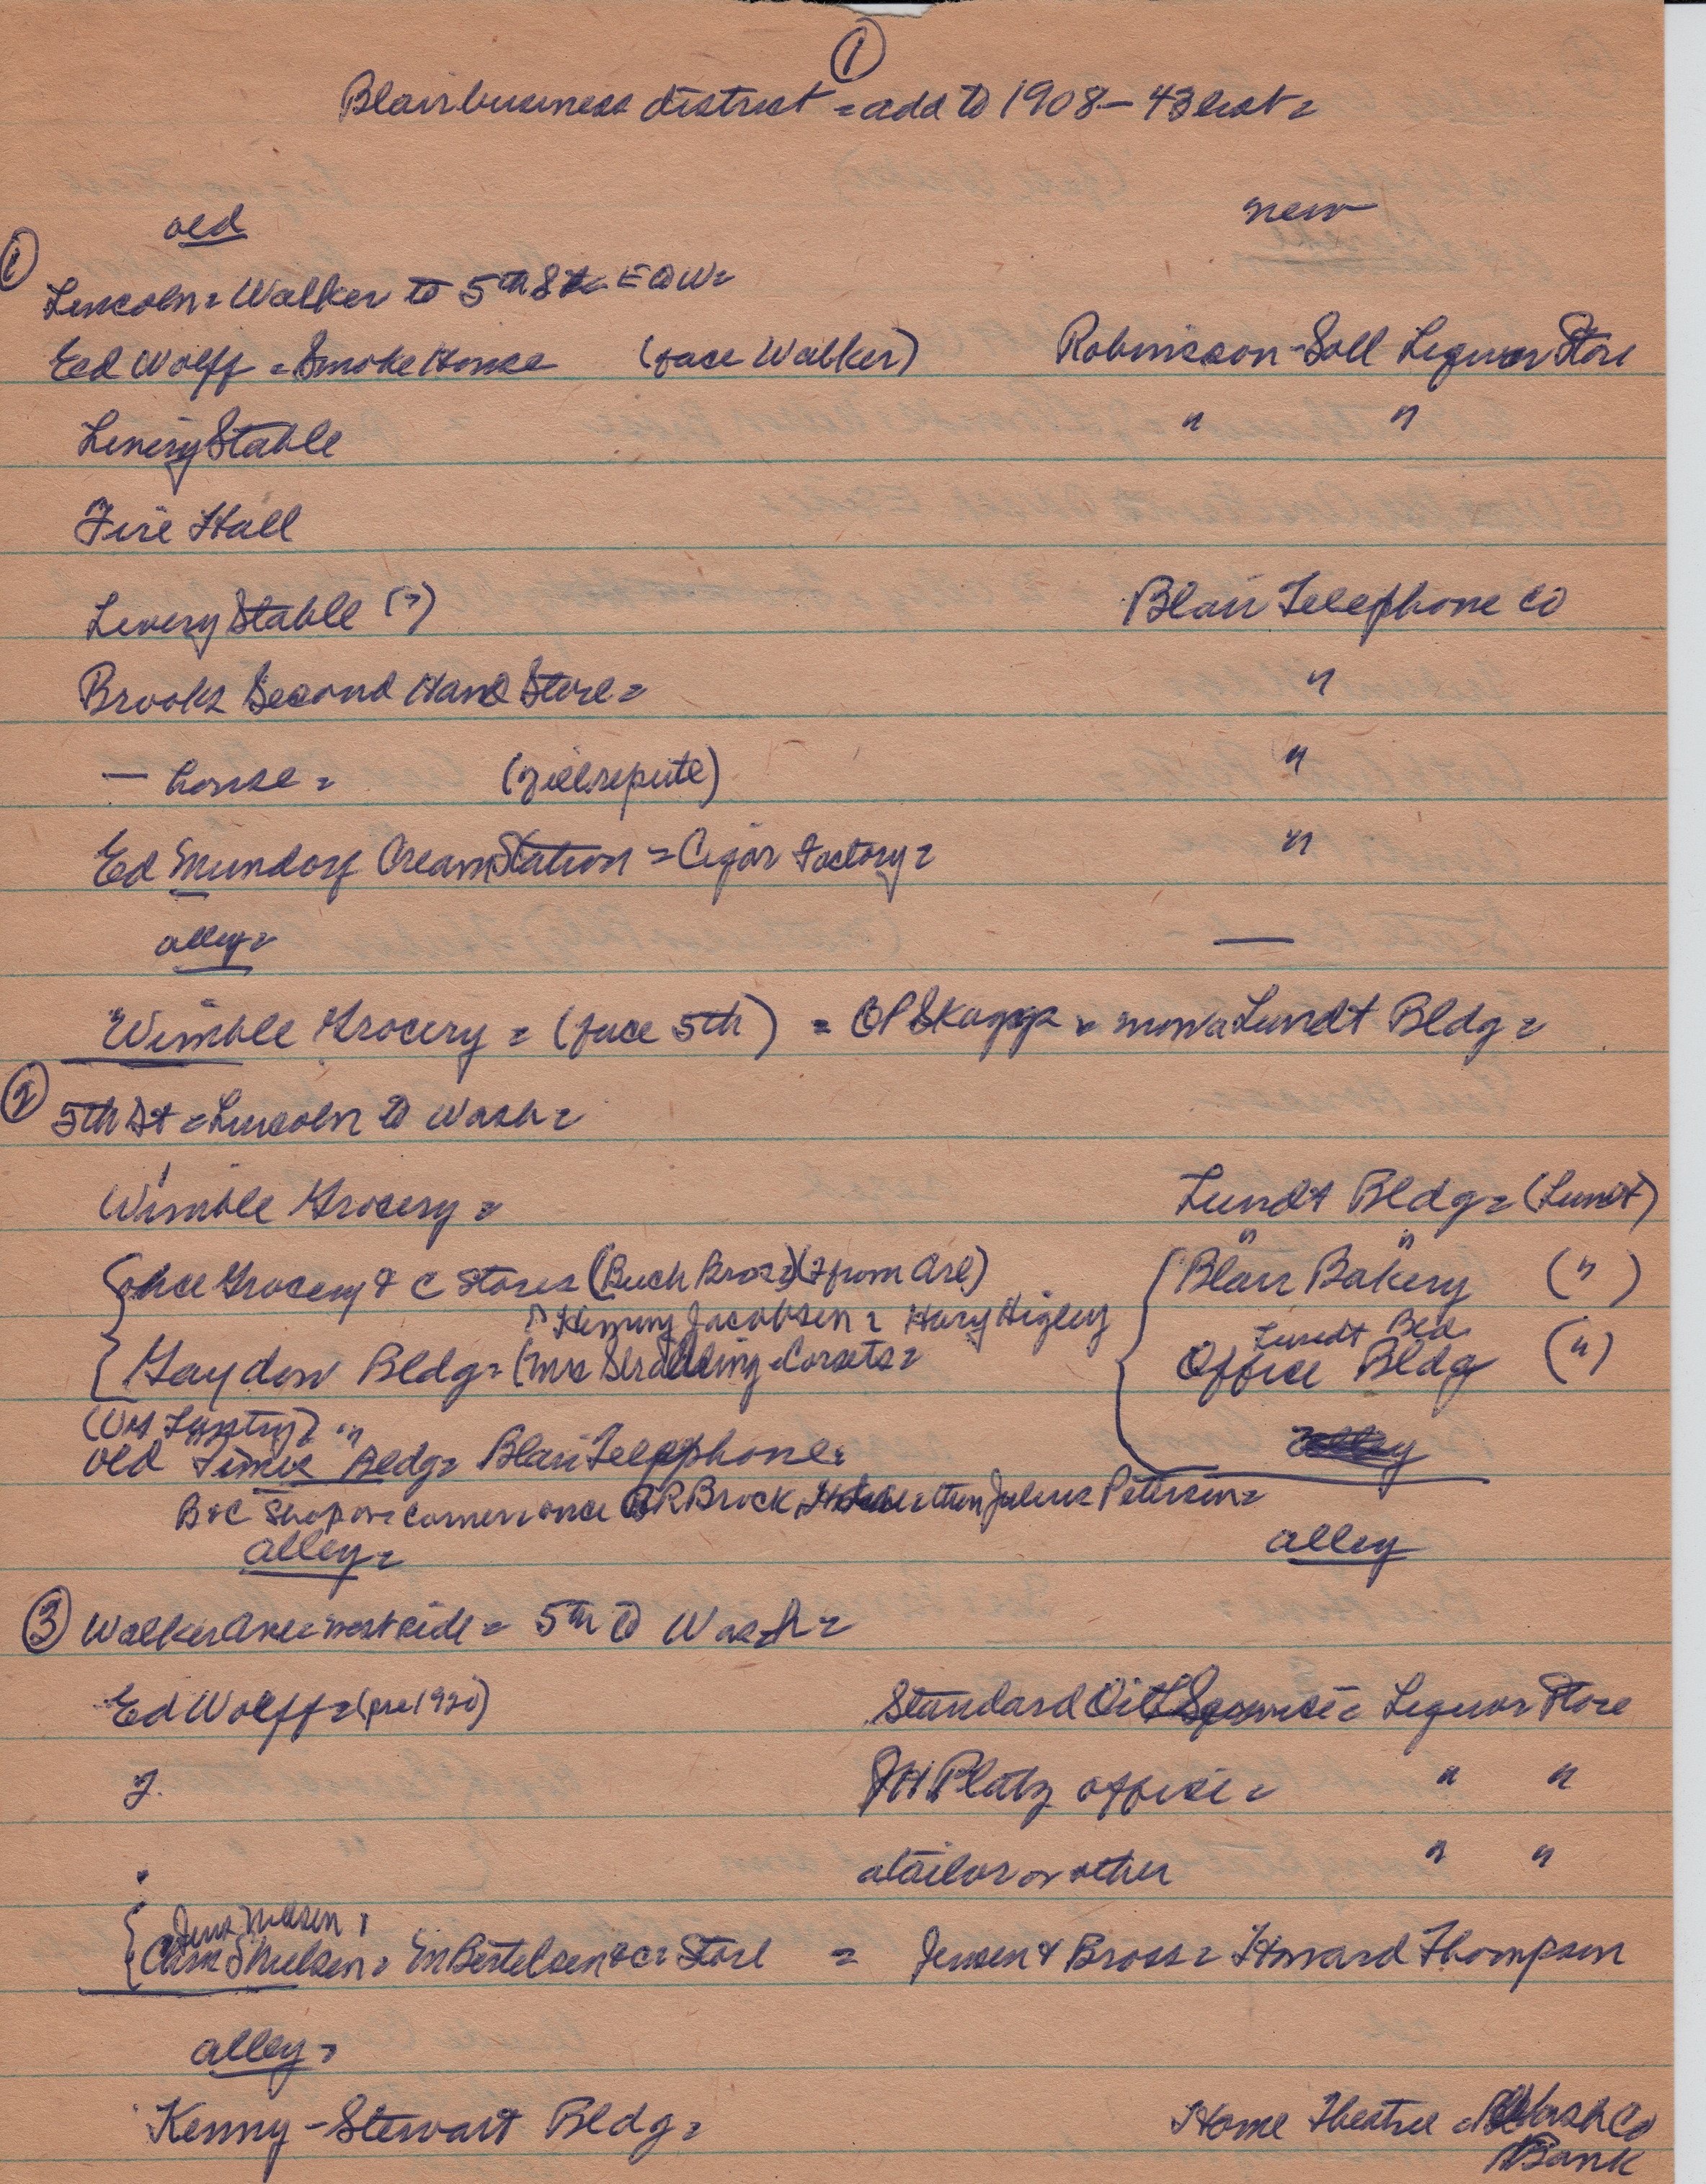 ①
Blair business district = add to 1908-43 list =
old new
① Lincoln = Walker to 5th St E to W =
Ed Wolff = Smoke House (face Walker) Robinson-Soll Liquor Store
Livery Stable " "
Fire Hall
Livery Stable (?) Blair Telephone Co
Brooks Second Hand Store = "
— house = (ill repute) "
Ed Mundorf Cream Station = Cigar Factory = "
alley = —
Wimble Grocery = (face 5th) = OP Skaggs = now a Lundt Bldg =
② 5th St = Lincoln to Wash =
Wimble Grocery = Lundt Bldg = (Lundt)
" "
once Grocery & C Stores (Buch Bros) (? from Arl) Blair Bakery (")
Henry Jacobsen = Harry Higley
Lundt Bld
Gaydow Bldg = (Mrs Straeling = Corsets = Office Bldg (")
"
Old Times Bldg = Blair Telephone =
B&C Shop on corner once BR Brock then Julius Petersen =
alley = alley
③ Walker Ave = west side = 5th to Wash =
Ed Wolff = (pre 1920) Standard Oil Service = Liquor Store
?. JH Platz office = " "
a tailor or other " "
Jens Nielsen,
Chris Nielsen = M Bertelsen & C = Store = Jensen & Bross = Howard Thompson
alley =
Kenny-Stewart Bldg = Home Theatre = Wash Co
Bank